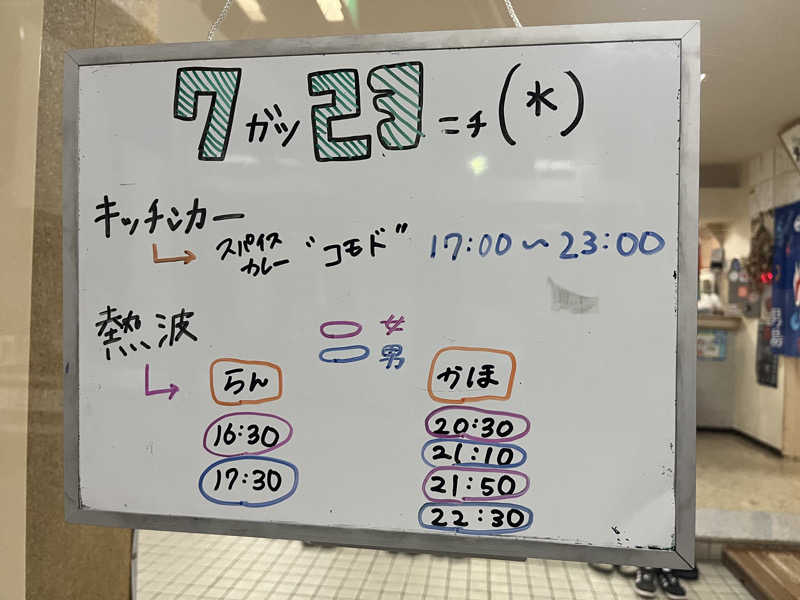 7ガツ23ニチ(*)
キッチンカー
スパイスカレー "コモド" 17:00〜23:00
熱波
女
男
らん かほ
16:30 20:30
17:30 21:10
21:50
22:30